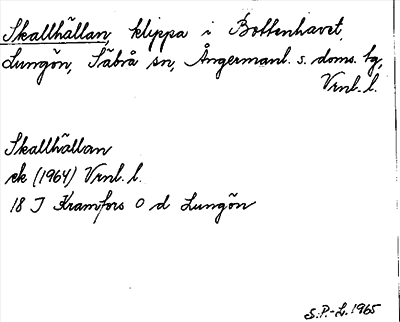 Skallhällan, klippa i Bottenhavet,
Lungön, Säbrå sn, Ångermanl. s. doms. tg,
Vrnl. l.
Skallhällan
ek (1964) Vrnl. l.
18 J Kramfors O d Lungön
S.P.-L. 1965